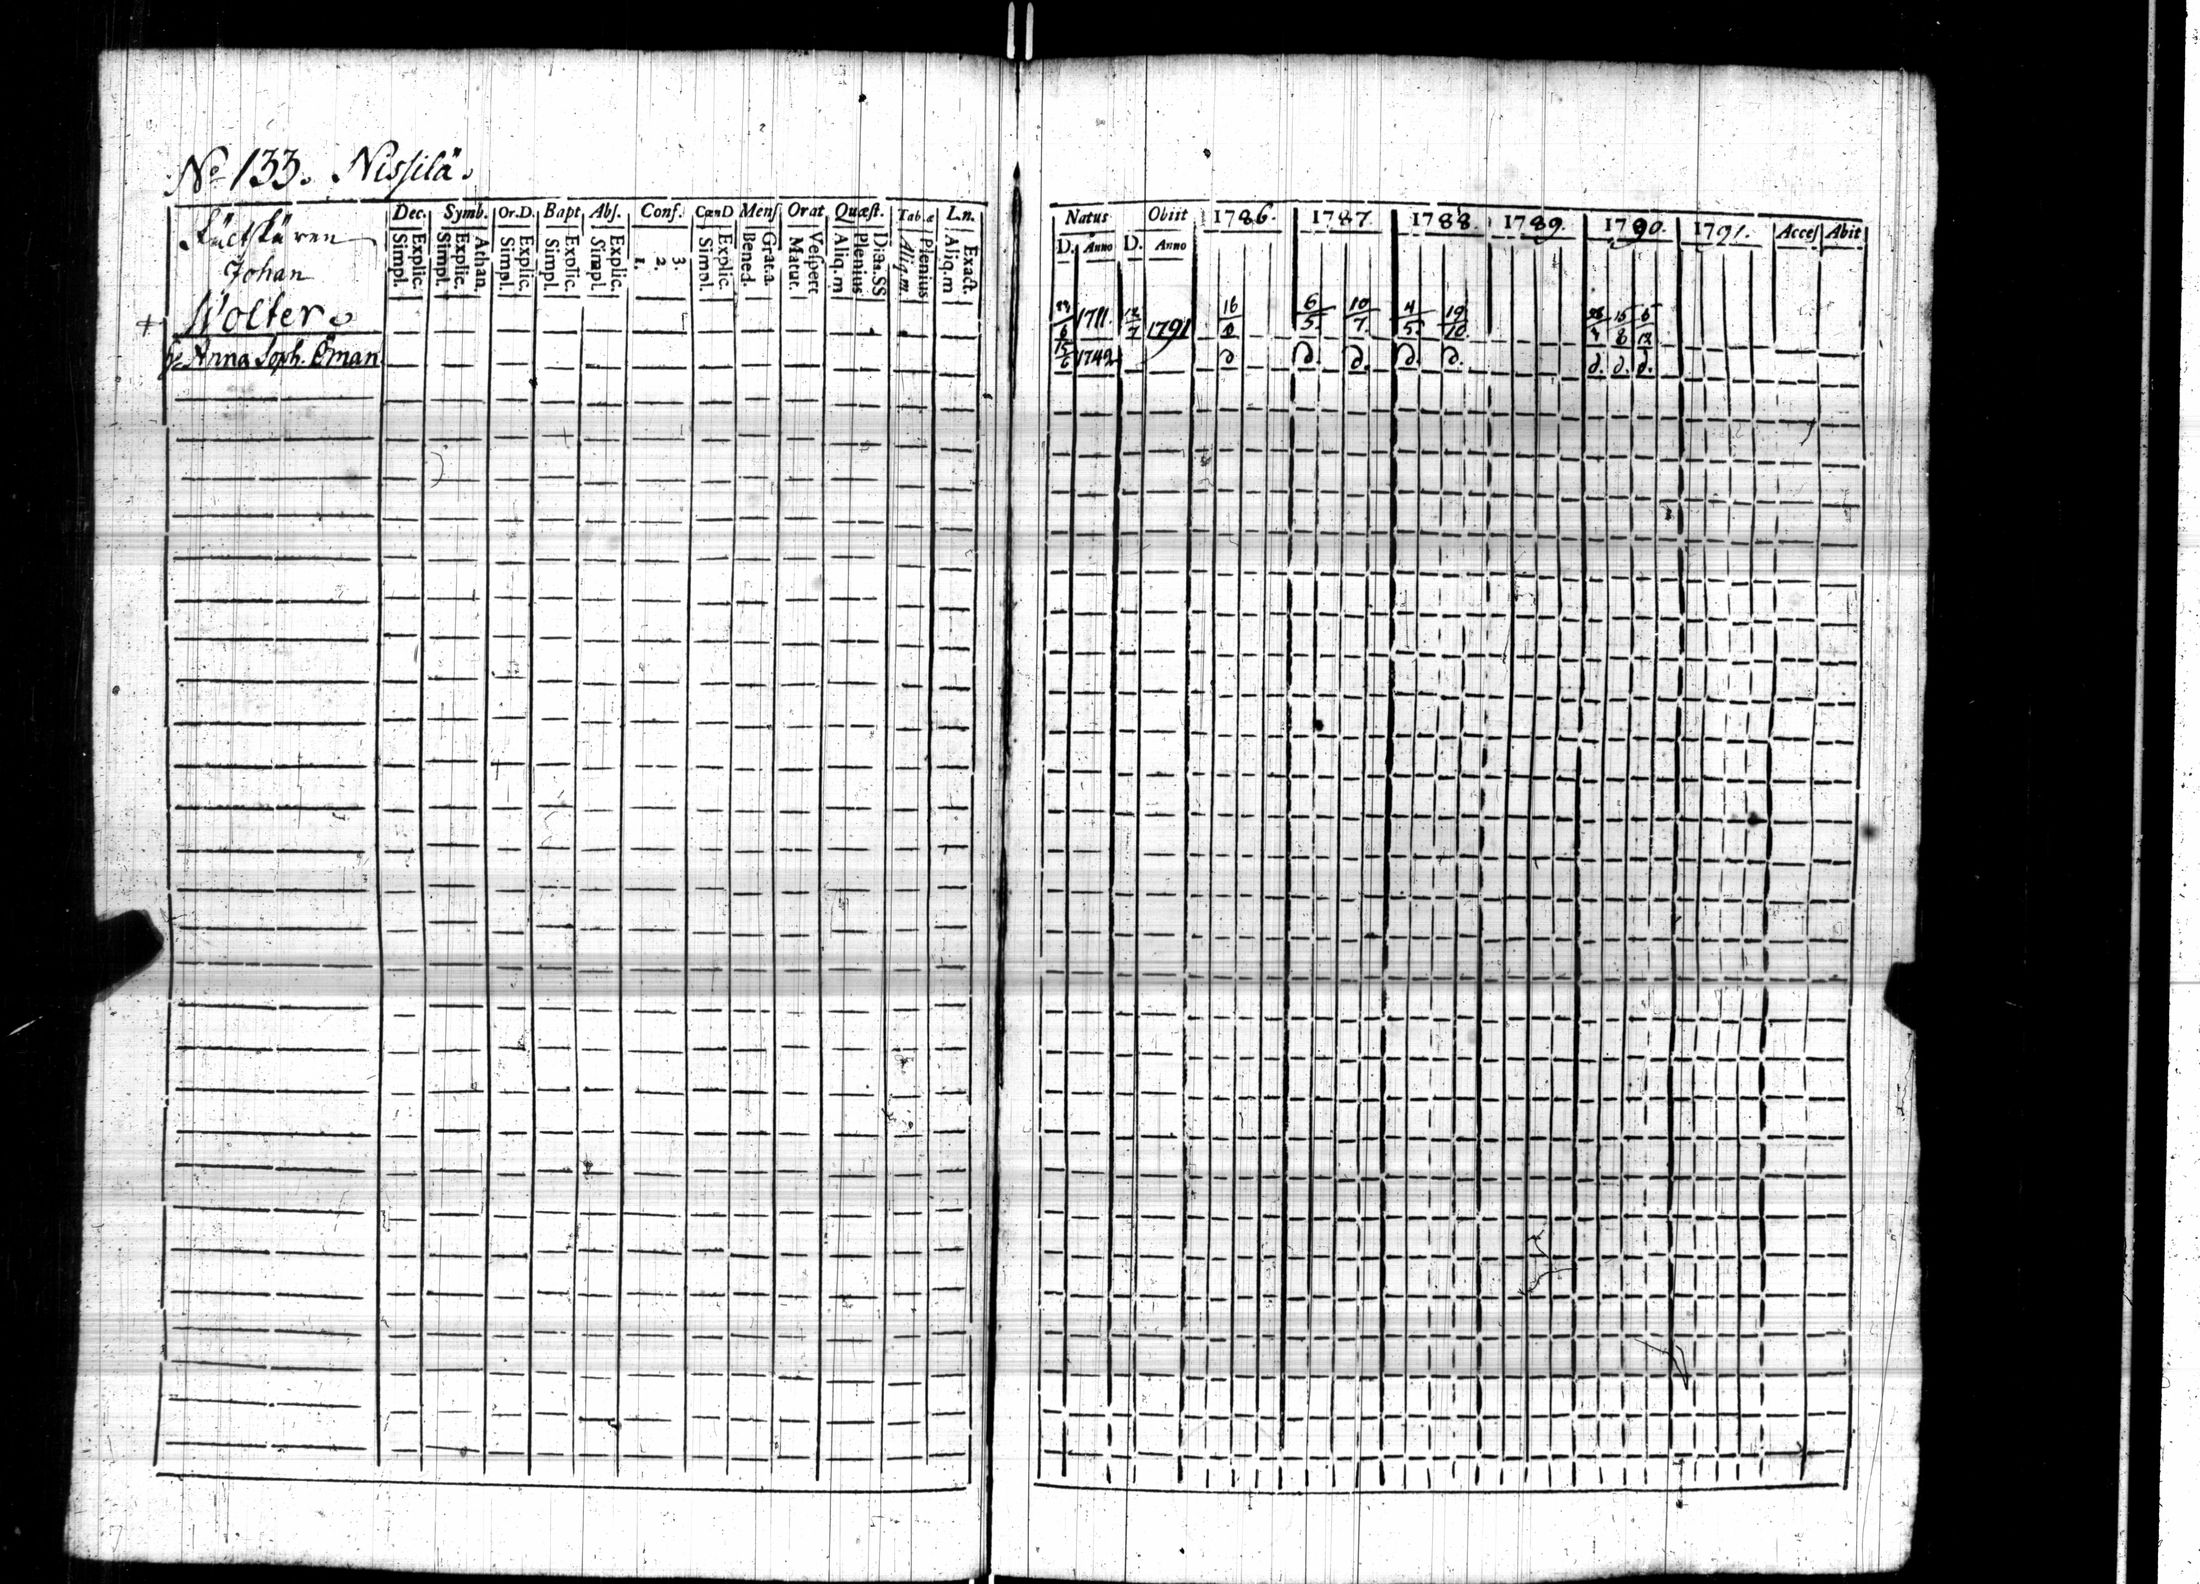 No 133. Nissilä.
Dec. Symb. Or.D. Bapt Abs. Conf. CœnD Mens Orat Quæst. Tab.æ L.n.
Simpl. Explic. Simpl. Explic. Athan. Simpl. Explic. Simpl. Explic. Simpl. Explic. 1. 2. 3. Simpl. Explic. Bened. Grat.a Matut. Vespert Aliq.m Plenius Dicta SS Aliq.m. Plenius Aliq.m Exact.
Johan
+ Wolter
h. Anna Soph. Öman
Natus Obiit 1786. 1787. 1788. 1789. 1790. 1791. Acces Abit
D. Anno D. Anno
1711. 1791 16 6/5. 10/7. 4/5. 19/10 15/8 6/12
15/6 1742 d. d. d. d. d. d. d. d.